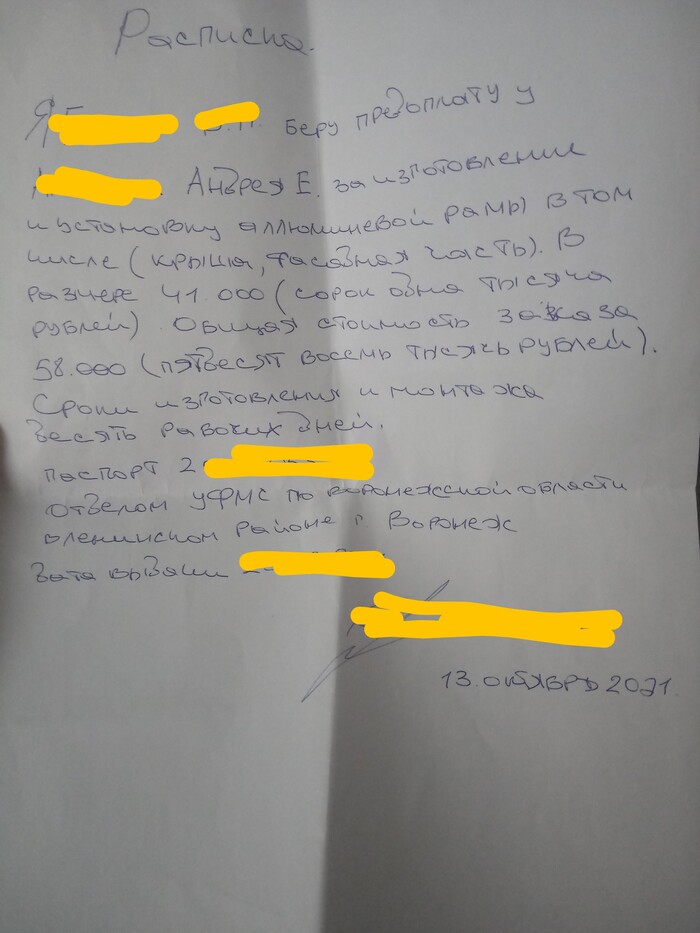 Расписка.
Я беру предоплату у
Андрея Е. за изготовлении
и установку аллюминевой рамы в том
числе (крыша, фасадная часть). В
размере 41 000 (сорок одна тысяча
рублей). Общая стоимость заказа
58.000 (пятдесят восемь тысячь рублей).
Сроки изготовления и монтажа
десять рабочих дней.
паспорт 2
отделом УФМС по воронежской области
вленинском районе г. Воронеж
дата выдачи
13.октября 2021.